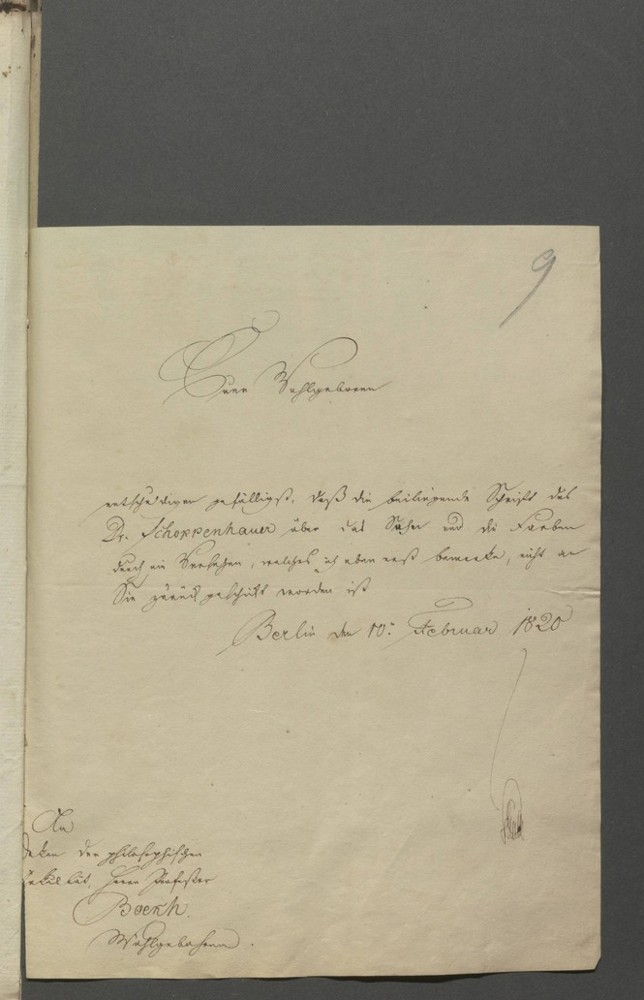 9
Euer Wohlgeboren
entschuldigen gefälligst, daß die beiliegende Schrift des
Dr. Schoppenhauer über das Sehen und die Farben
durch ein Versehen, welches ich eben erst bemerke, nicht an
Sie zurück geschickt worden ist
Berlin den 10. Februar 1820
An
Dekan der philosophischen
Fakultät, Herrn Professor
Boeckh
Wohlgeboren.